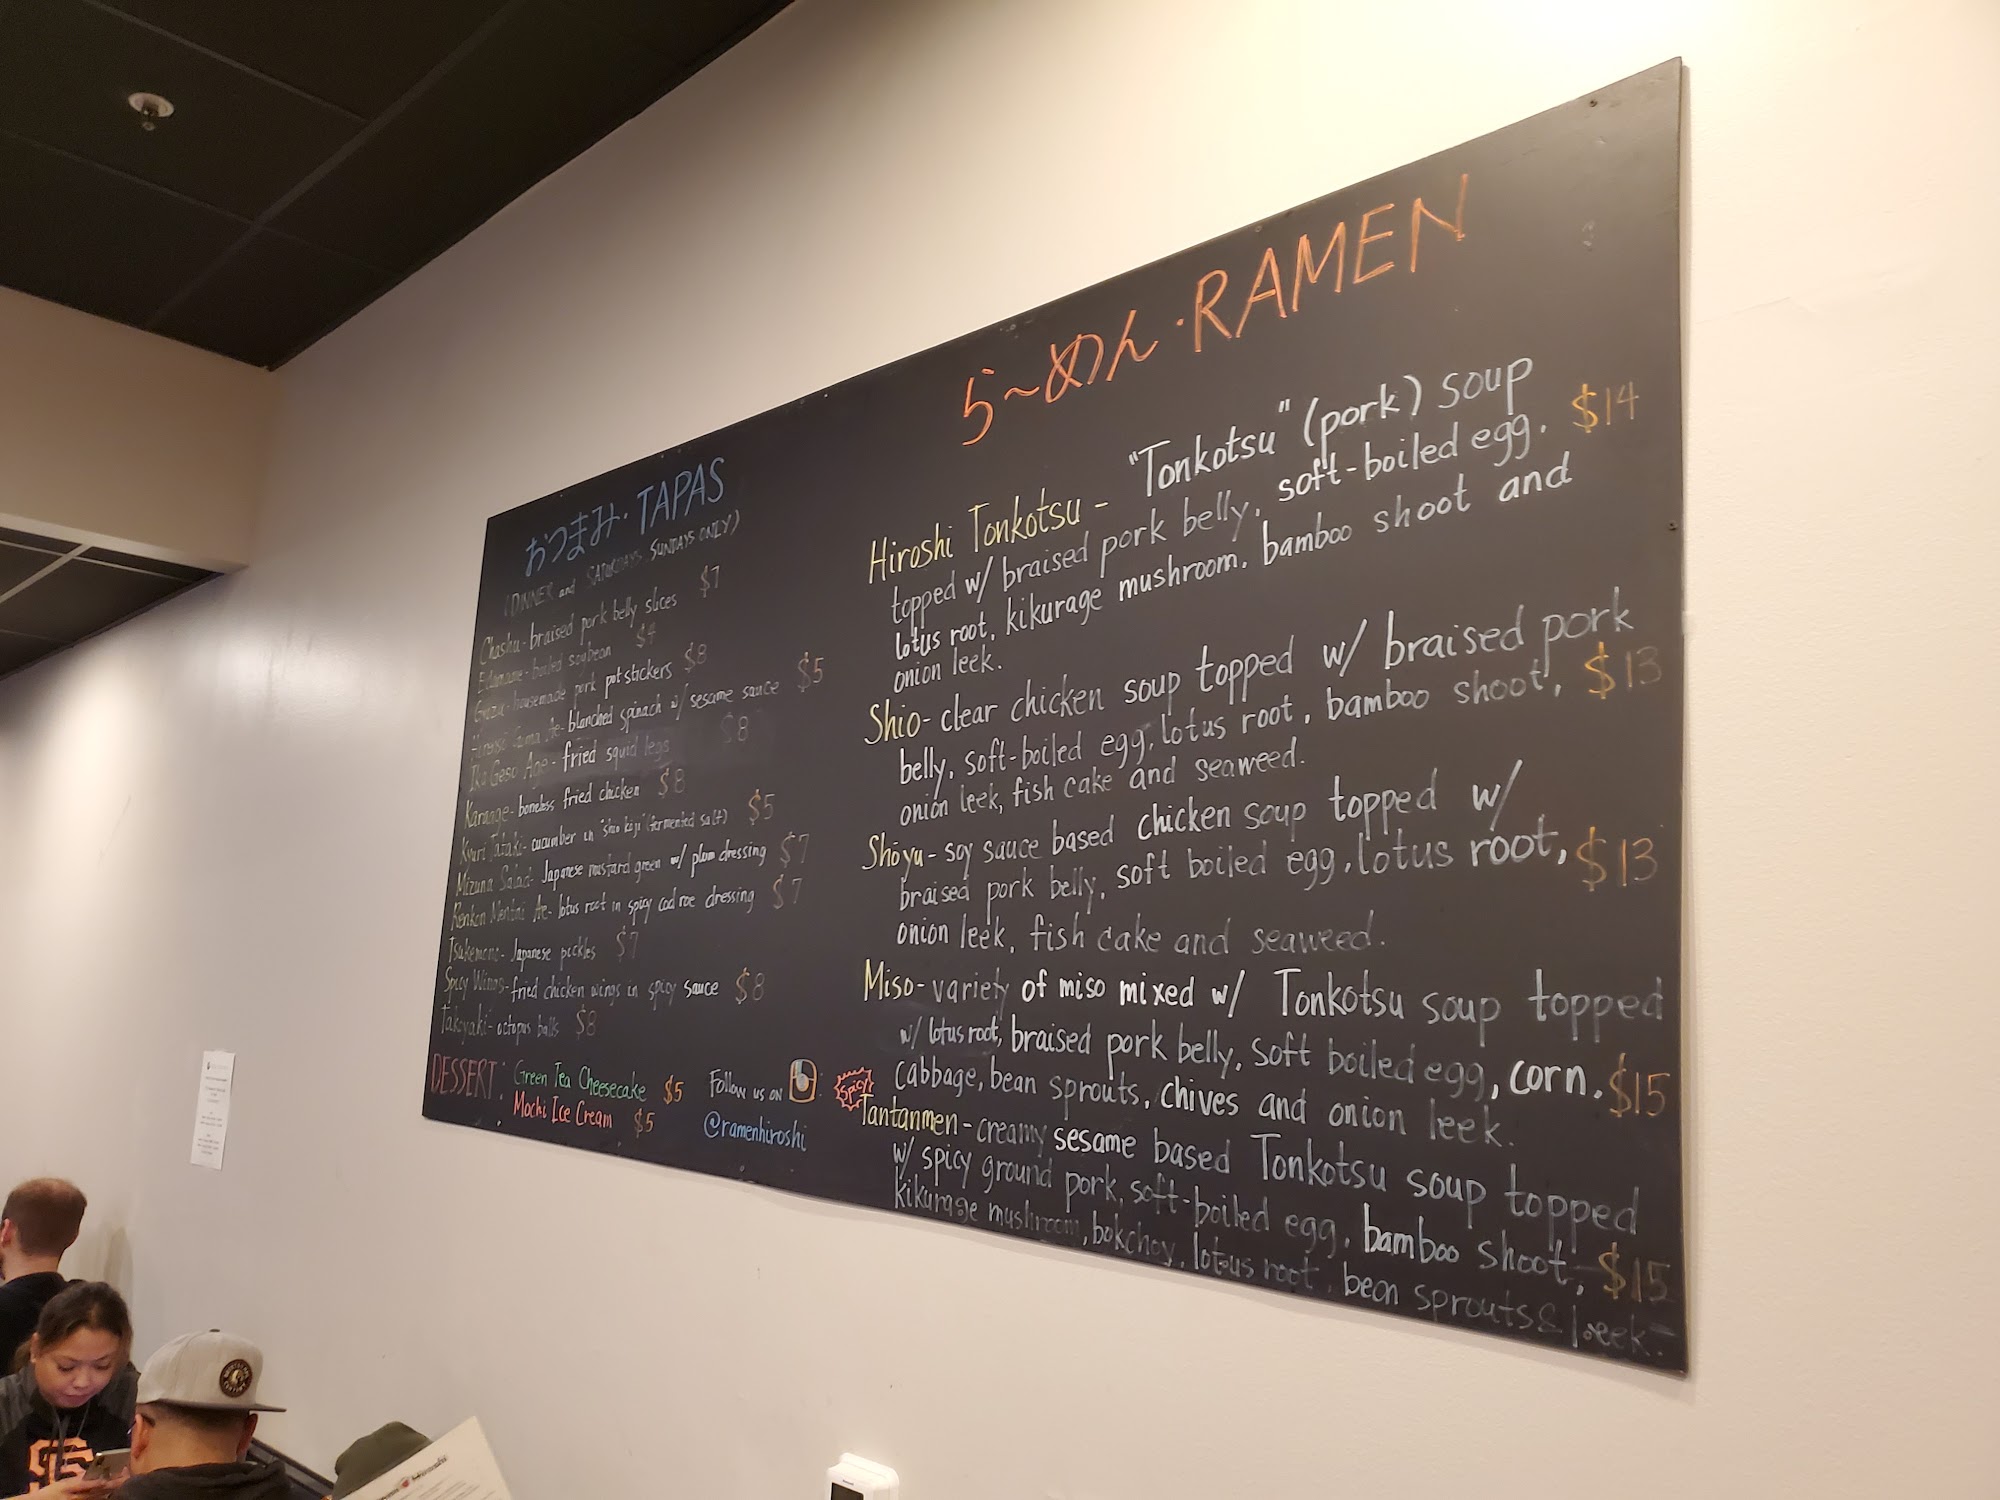 おつまみ・TAPAS
(DINNER and SATURDAYS, SUNDAYS ONLY)
Chashu - braised pork belly slices $7
Edamame - boiled soybean $4
Gyoza - housemade pork potstickers $8
Goma Ae - blanched spinach w/ sesame sauce $5
Ika Geso Age - fried squid legs $8
Karaage - boneless fried chicken $8
Kyuri Tataki - cucumber in "shio koji" (fermented salt) $5
Mizuna Salad - Japanese mustard green w/ plum dressing $7
Renkon Mentai Ae - lotus root in spicy cod roe dressing $7
Tsukemono - Japanese pickles $7
Spicy Wings - fried chicken wings in spicy sauce $8
Takoyaki - octopus balls $8
DESSERT: Green Tea Cheesecake $5
Mochi Ice Cream $5
Follow us on
@ramenhiroshi
ら〜めん・RAMEN
Hiroshi Tonkotsu - "Tonkotsu" (pork) soup
topped w/ braised pork belly, soft-boiled egg, $14
lotus root, kikurage mushroom, bamboo shoot and
onion leek.
Shio - clear chicken soup topped w/ braised pork
belly, soft-boiled egg, lotus root, bamboo shoot, $13
onion leek, fish cake and seaweed.
Shoyu - soy sauce based chicken soup topped w/
braised pork belly, soft boiled egg, lotus root, $13
onion leek, fish cake and seaweed.
Miso - variety of miso mixed w/ Tonkotsu soup topped
w/ lotus root, braised pork belly, soft boiled egg, corn, $15
cabbage, bean sprouts, chives and onion leek.
Spicy
Tantanmen - creamy sesame based Tonkotsu soup topped
w/ spicy ground pork, soft-boiled egg, bamboo shoot, $15
kikurage mushroom, bokchoy, lotus root, bean sprouts & leek.
SF
Hiroshi